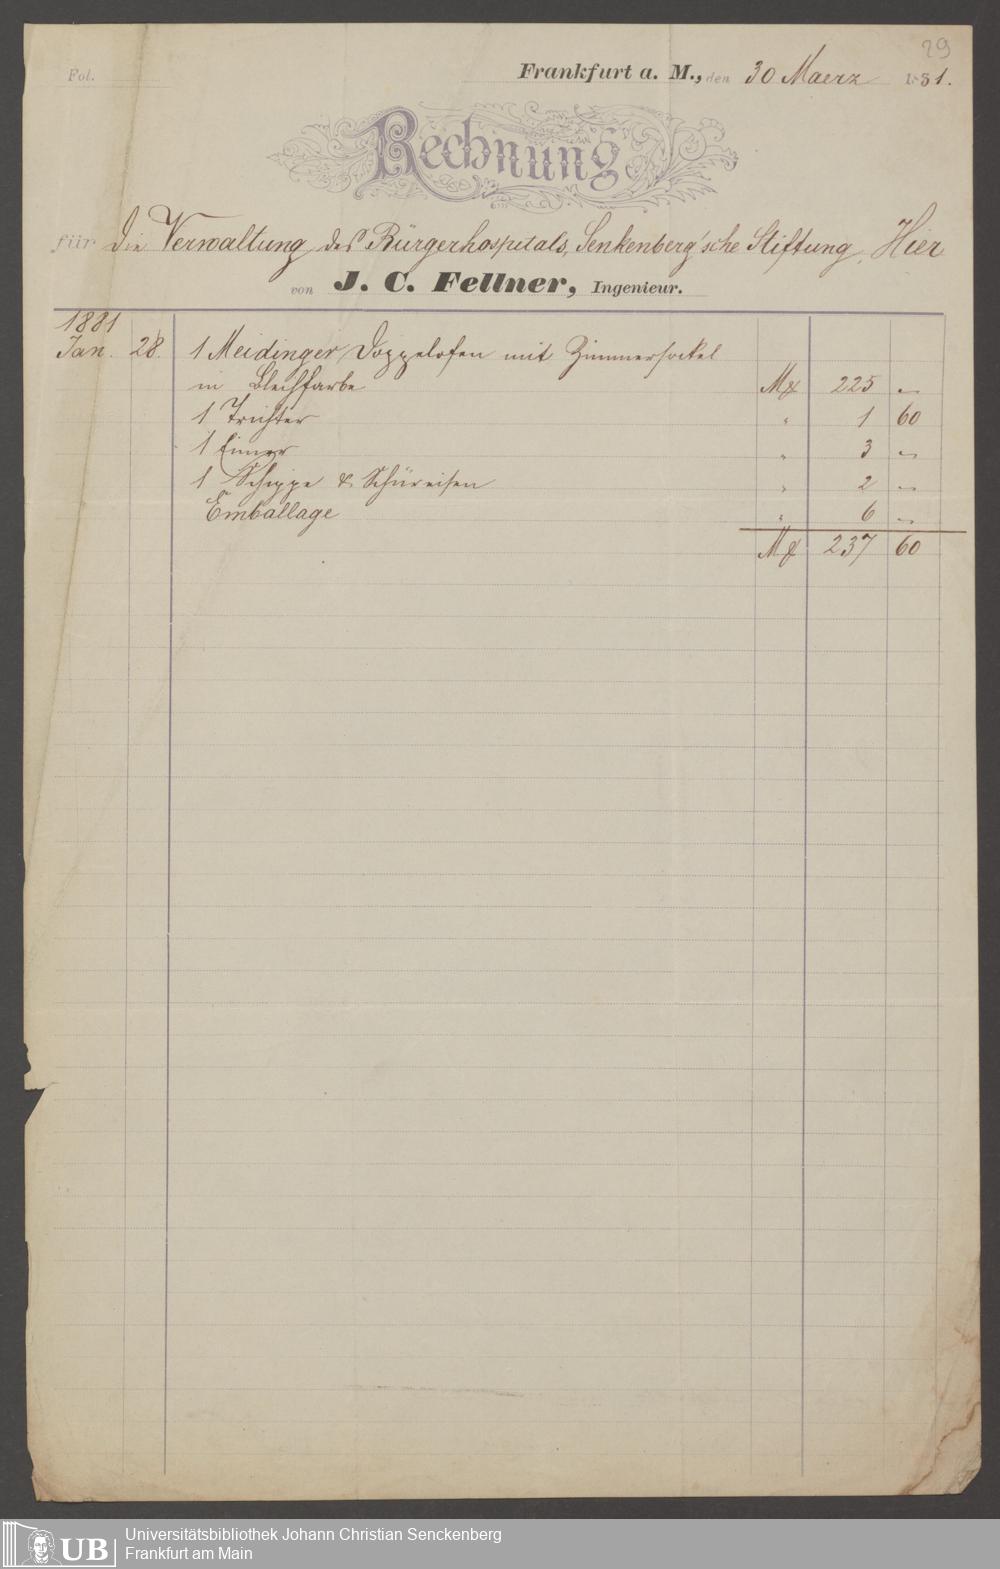 29
Fol.
Frankfurt a. M., den 30 Maerz 1881.
Rechnung
für die Verwaltung des Bürgerhospitals, Senkenberg'sche Stiftung, Hier
von J. C. Fellner, Ingenieur.
1881
Jan. 28. 1 Meidinger Doppelofen mit Zimmersockel
in Blechfarbe M 225 –
1 Trichter " 1 60
1 Eimer " 3 –
1 Schippe & Schüreisen " 2 –
Emballage " 6 –
M 237 60
Universitätsbibliothek Johann Christian Senckenberg
Frankfurt am Main
UB